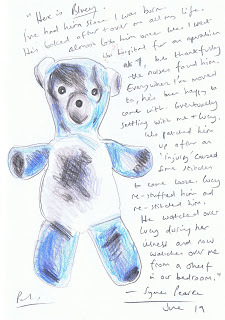 "Here is Bluey.
I've had him since I was born.
He's looked after + over me all my life.
almost lost him once when I went
into hospital for an operation
at 7, but thankfully
the nurses found him.
Everywhere I've moved
to, he's been happy to
come with. Eventually
settling with me + Lucy.
Who patched him
up after an
injury caused
some stitches
to come loose. Lucy
re-stuffed him and
re-stitched him.
He watched over
Lucy during her
illness and now
watches over me
from a shelf
in our bedroom."
— Pearce
June 19